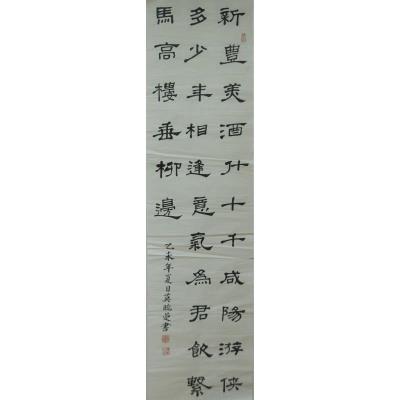 新豐美酒斗十千咸陽游俠
多少年相逢意氣為君飲繫
馬高樓垂柳邊
乙未年夏日英聪爱書